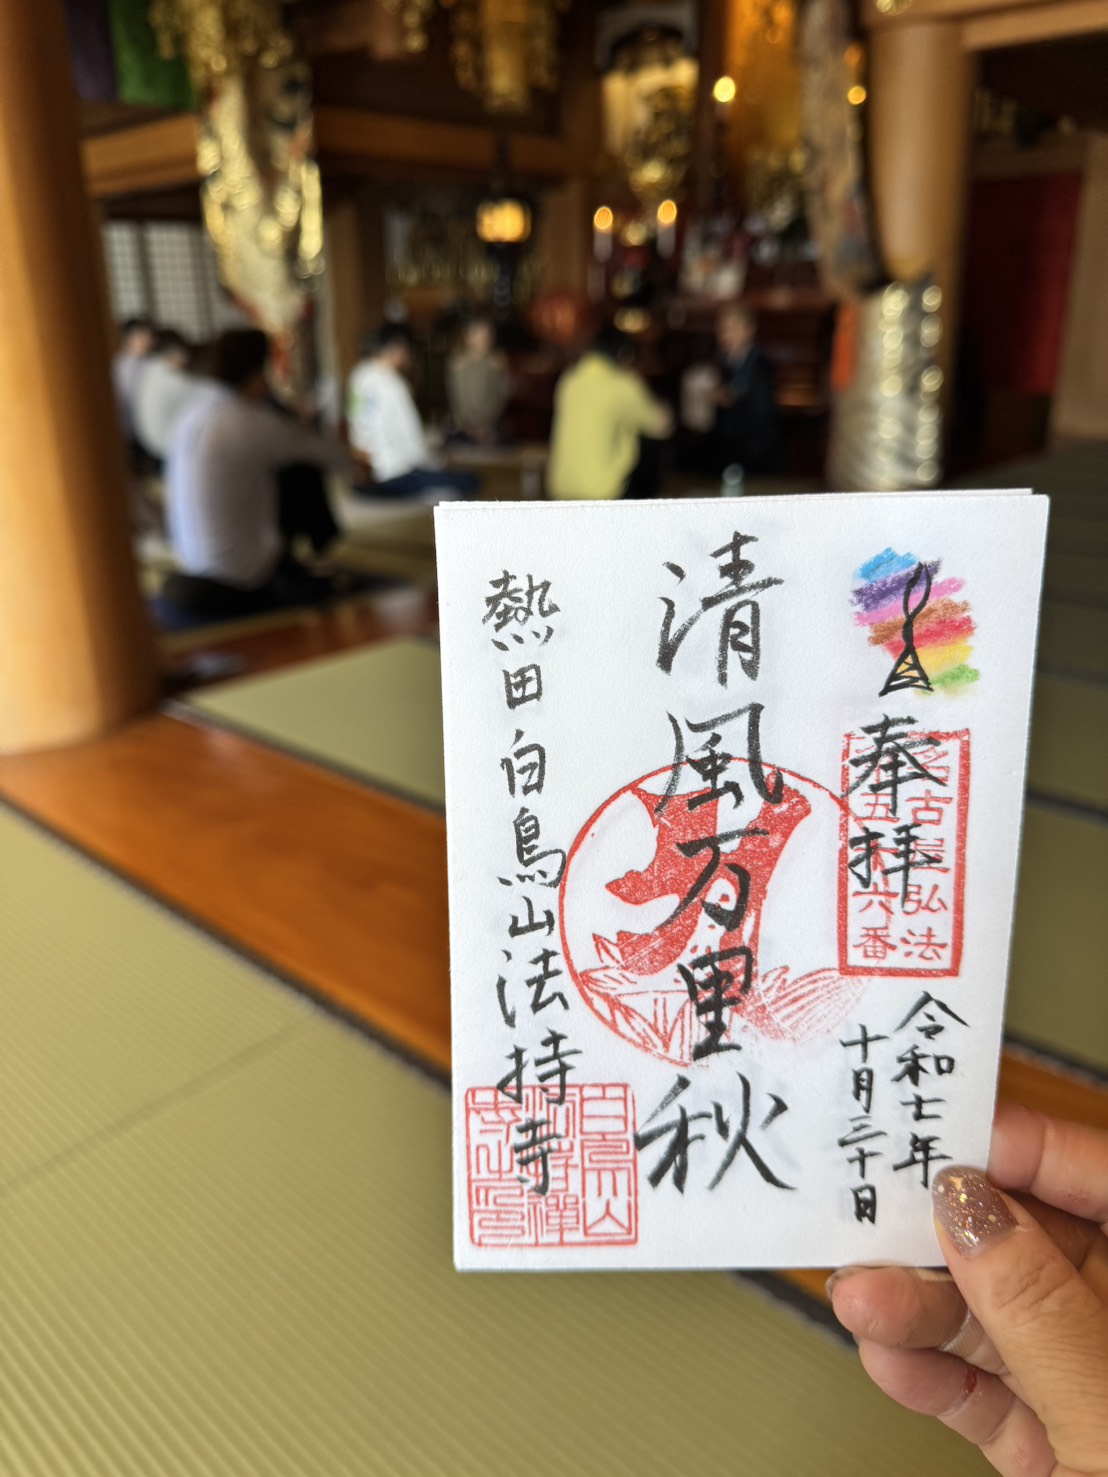 奉拝
名古屋弘法
第五十六番
令和七年
十月三十日
清風万里秋
熱田白鳥山法持寺